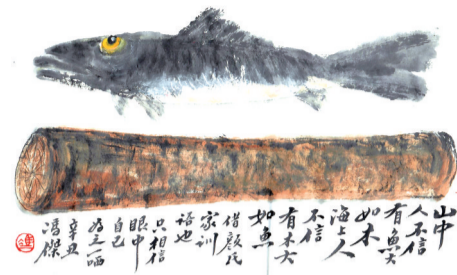 山中
人不信
有魚大
如木
海上人
不信
有木大
如魚
借顏氏
家訓
語也
只相信
眼中
自己
為之一哂
辛丑
馮傑